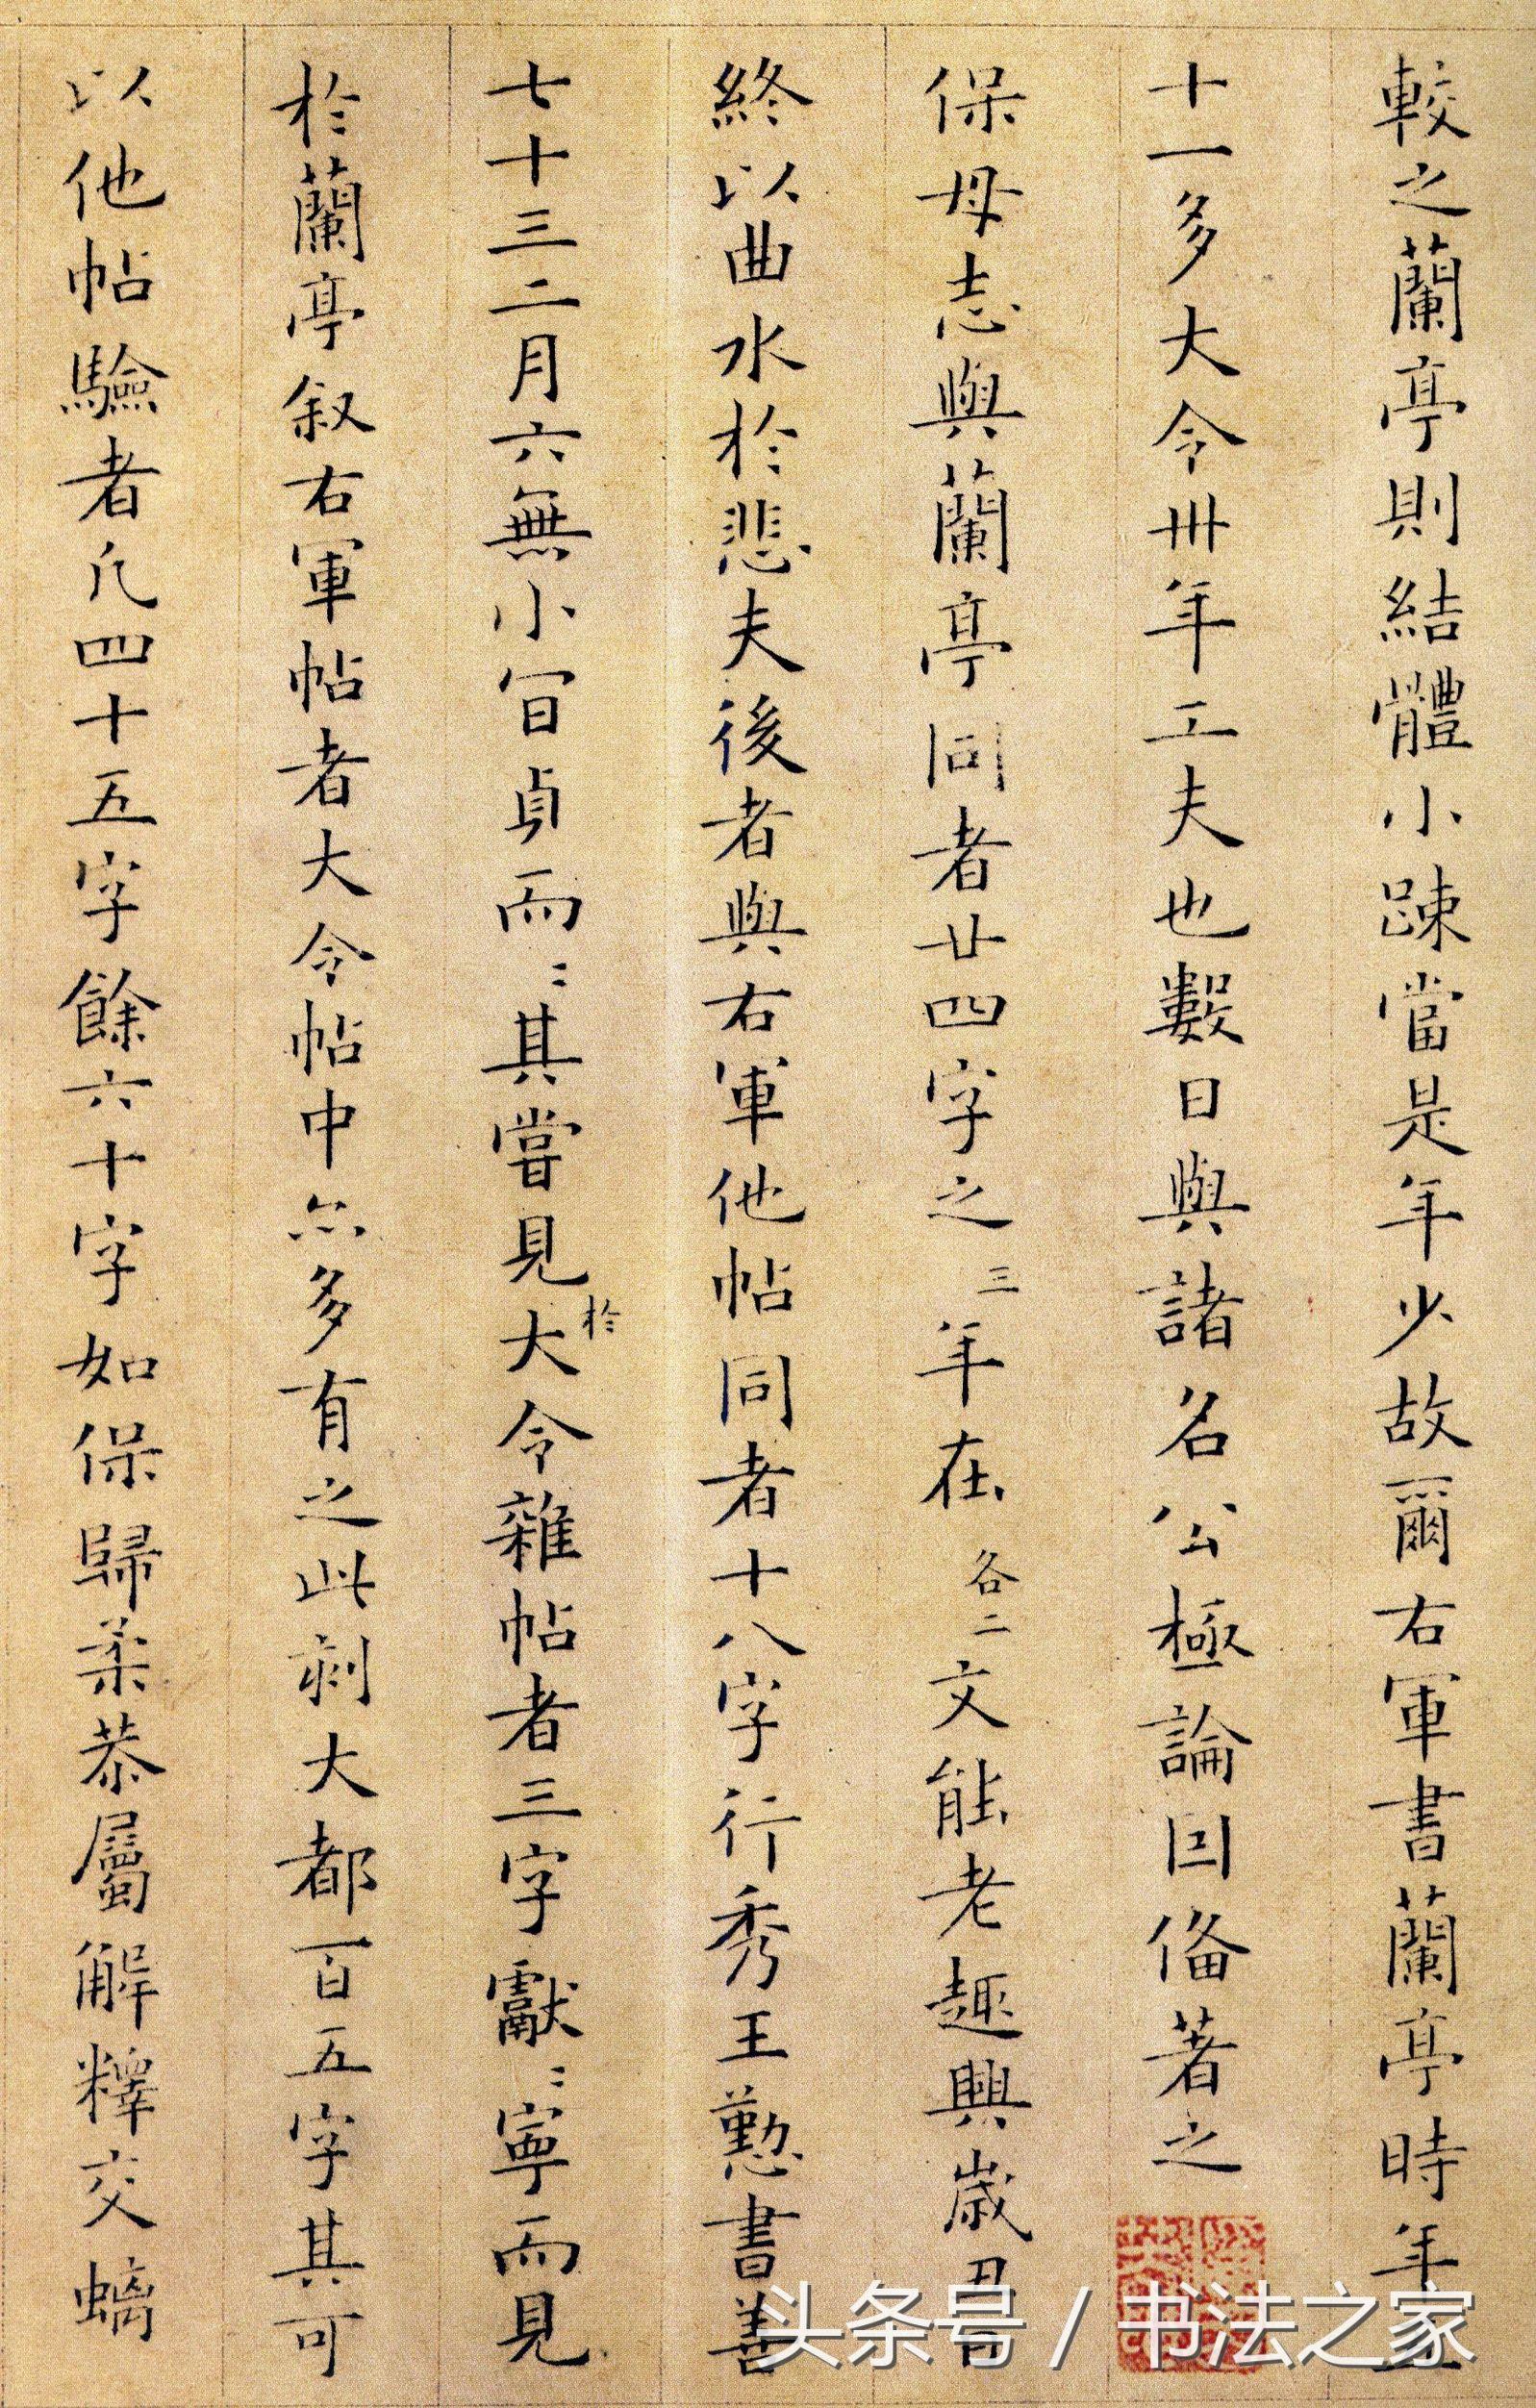 較之蘭亭則結體小踈當是年少故爾右軍書蘭亭時年五
十一多大令卅年工夫也數日與諸名公極論因俻著之
保母志與蘭亭同者廿四字之三年在各二文能老趣興歲丑日
終以曲水於悲夫後者與右軍他帖同者十八字行秀王懃書善
七十三二月六無小冝貞而〻其嘗見於大令雜帖者三字獻〻寧而見
於蘭亭叙右軍帖者大令帖中亦多有之此刻大都百五字其可
以他帖驗者凡四十五字餘六十字如保歸柔恭屬解釋交螭
头条号 / 书法之家